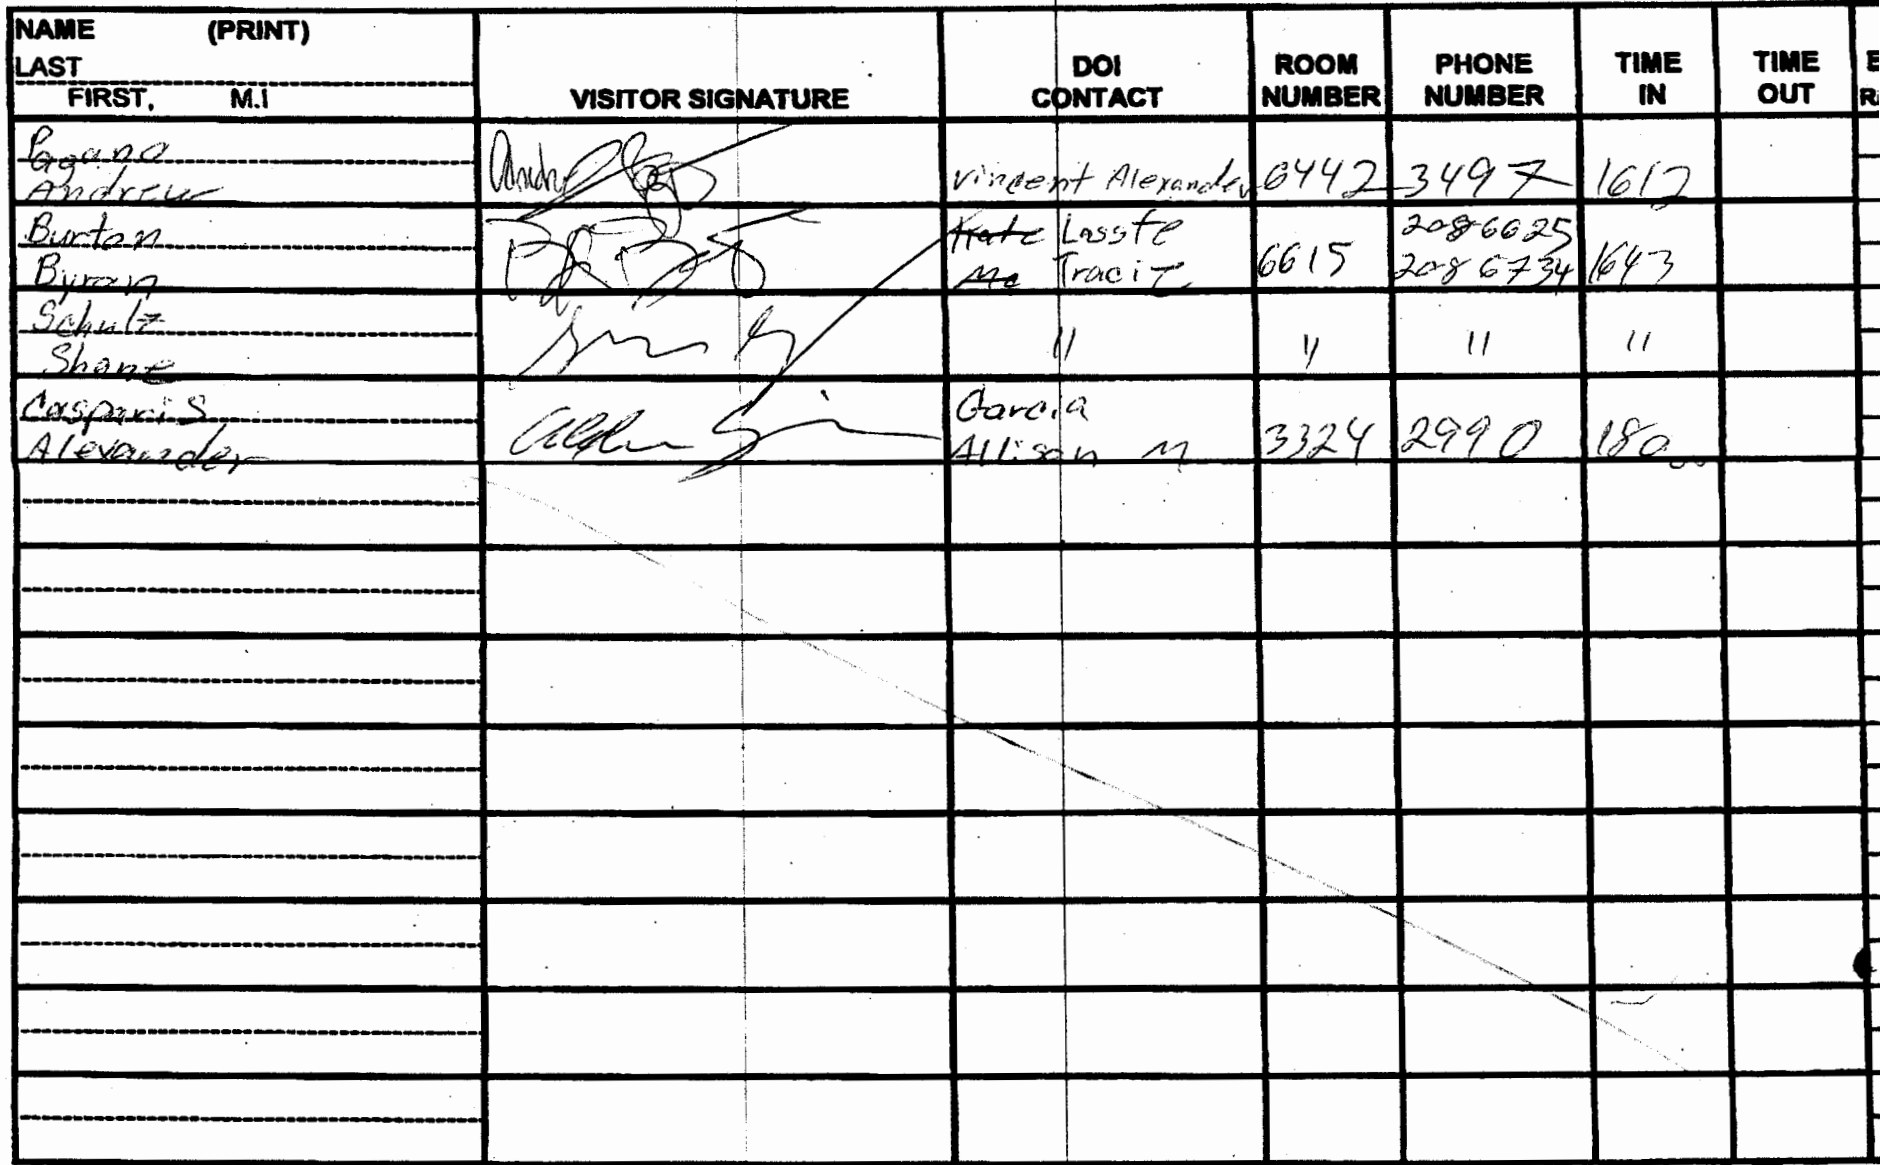 NAME (PRINT)
LAST
FIRST, M.I
VISITOR SIGNATURE
DOI CONTACT
ROOM NUMBER
PHONE NUMBER
TIME IN
TIME OUT
Pagano
Andrew
Vincent Alexander 6442 3497 1612
Burton
Byron
Kate Lasste
Tracie
6615
208 6625
208 6734
1643
Schultz
Shane
" " " "
Casparis
Alexander
Garcia
Allison M
3324 2990